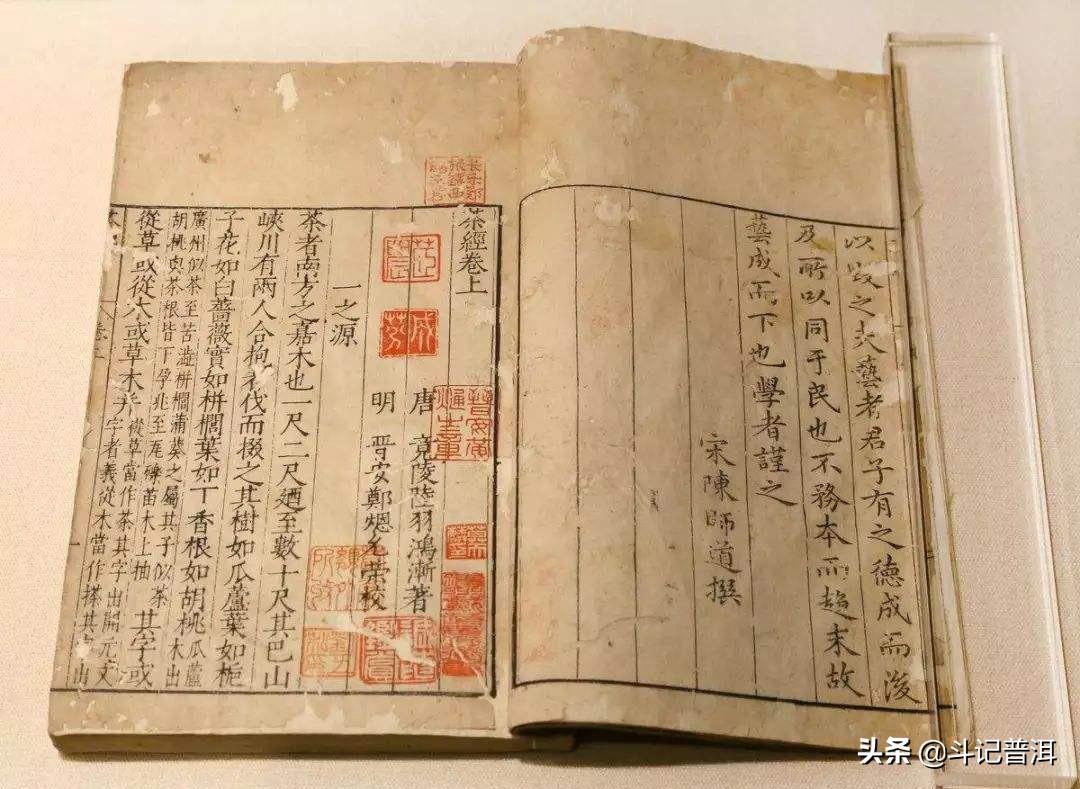 以毀之夫藝者君子有之德成而後
及所以同于民也不務本而趨末故
藝成而下也學者謹之
宋陳師道撰
茶經卷上
唐 竟陵陸羽鴻漸著
明 晉安鄭熜允榮校
一之源
茶者南方之嘉木也一尺二尺廼至數十尺其巴山
峽川有兩人合抱者伐而掇之其樹如瓜蘆葉如梔
子花如白薔薇實如栟櫚葉如丁香根如胡桃瓜蘆木出
廣州似茶至苦澁栟櫚蒲葵之屬其子似茶
胡桃與茶根皆下孕兆至瓦礫苗木上抽 其字或
從草或從木或草木并 從草當作茶其字出開元文
字者義從木當作搽其字出
头条 @斗记普洱